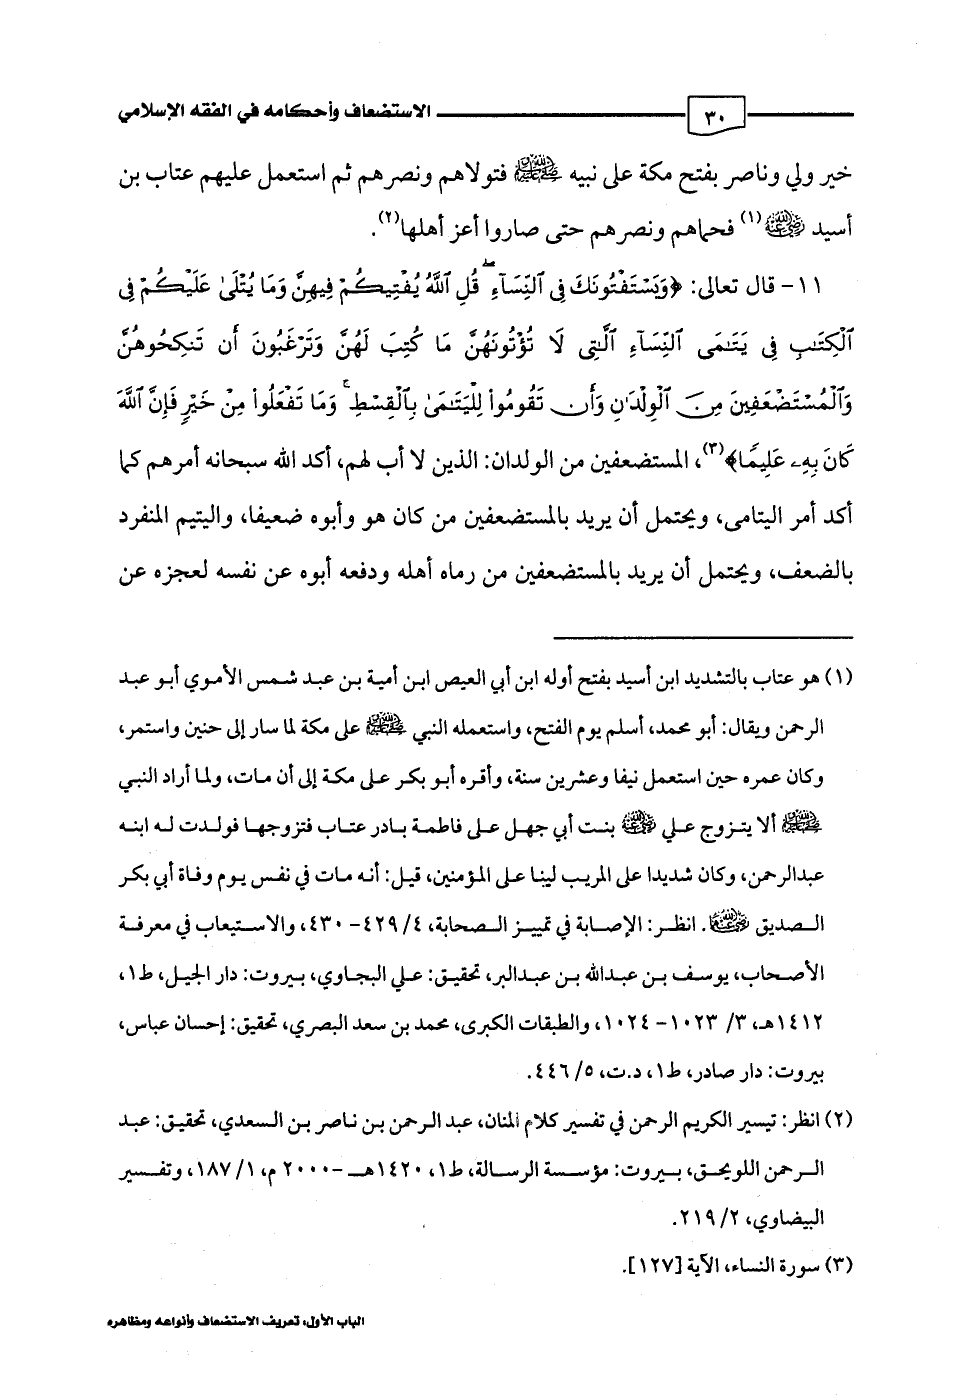 ٣٠ الاستضعاف وأحكامه في الفقه الإسلامي
خير ولي وناصر بفتح مكة على نبيه ﷺ فتولاهم ونصرهم ثم استعمل عليهم عتاب بن
أسيد رضي الله عنه(١) فحماهم ونصرهم حتى صاروا أعز أهلها(٢).
١١- قال تعالى: ﴿وَيَسْتَفْتُونَكَ فِى ٱلنِّسَآءِ ۖ قُلِ ٱللَّهُ يُفْتِيكُمْ فِيهِنَّ وَمَا يُتْلَىٰ عَلَيْكُمْ فِى
ٱلْكِتَٰبِ فِى يَتَٰمَى ٱلنِّسَآءِ ٱلَّٰتِى لَا تُؤْتُونَهُنَّ مَا كُتِبَ لَهُنَّ وَتَرْغَبُونَ أَن تَنكِحُوهُنَّ
وَٱلْمُسْتَضْعَفِينَ مِنَ ٱلْوِلْدَٰنِ وَأَن تَقُومُوا۟ لِلْيَتَٰمَىٰ بِٱلْقِسْطِ ۚ وَمَا تَفْعَلُوا۟ مِنْ خَيْرٍ فَإِنَّ ٱللَّهَ
كَانَ بِهِۦ عَلِيمًا﴾(٣)، المستضعفين من الولدان: الذين لا أب لهم، أكد الله سبحانه أمرهم كما
أكد أمر اليتامى، ويحتمل أن يريد بالمستضعفين من كان هو وأبوه ضعيفا، واليتيم المنفرد
بالضعف، ويحتمل أن يريد بالمستضعفين من رماه أهله ودفعه أبوه عن نفسه لعجزه عن
(١) هو عتاب بالتشديد ابن أسيد بفتح أوله ابن أبي العيص ابن أمية بن عبد شمس الأموي أبو عبد
الرحمن ويقال: أبو محمد، أسلم يوم الفتح، واستعمله النبي ﷺ على مكة لما سار إلى حنين واستمر،
وكان عمره حين استعمل نيفا وعشرين سنة، وأقره أبو بكر على مكة إلى أن مات، ولما أراد النبي
ﷺ ألا يتزوج علي رضي الله عنه بنت أبي جهل على فاطمة بادر عتاب فتزوجها فولدت له ابنه
عبدالرحمن، وكان شديدا على المريب لينا على المؤمنين، قيل: أنه مات في نفس يوم وفاة أبي بكر
الصديق رضي الله عنه. انظر: الإصابة في تمييز الصحابة، ٤/ ٤٢٩- ٤٣٠، والاستيعاب في معرفة
الأصحاب، يوسف بن عبدالله بن عبدالبر، تحقيق: علي البجاوي، بيروت: دار الجيل، ط١،
١٤١٢هـ، ٣/ ١٠٢٣- ١٠٢٤، والطبقات الكبرى، محمد بن سعد البصري، تحقيق: إحسان عباس،
بيروت: دار صادر، ط١، د.ت، ٥/ ٤٤٦.
(٢) انظر: تيسير الكريم الرحمن في تفسير كلام المنان، عبد الرحمن بن ناصر بن السعدي، تحقيق: عبد
الرحمن اللويحق، بيروت: مؤسسة الرسالة، ط١، ١٤٢٠هـ -٢٠٠٠م، ١/ ١٨٧، وتفسير
البيضاوي، ٢/ ٢١٩.
(٣) سورة النساء، الآية [١٢٧].
الباب الأول، تعريف الاستضعاف وأنواعه ومظاهره